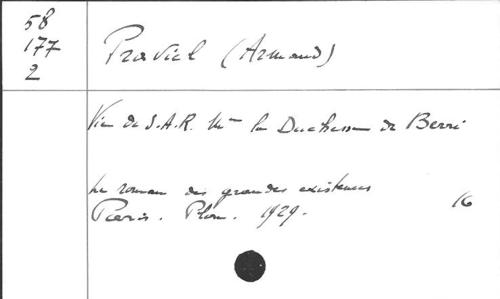 58
177
2
Praviel (Armand)
Vie de S.A.R. Mme la Duchesse de Berri
Le roman des grandes existences
16
Paris. Plon. 1929.